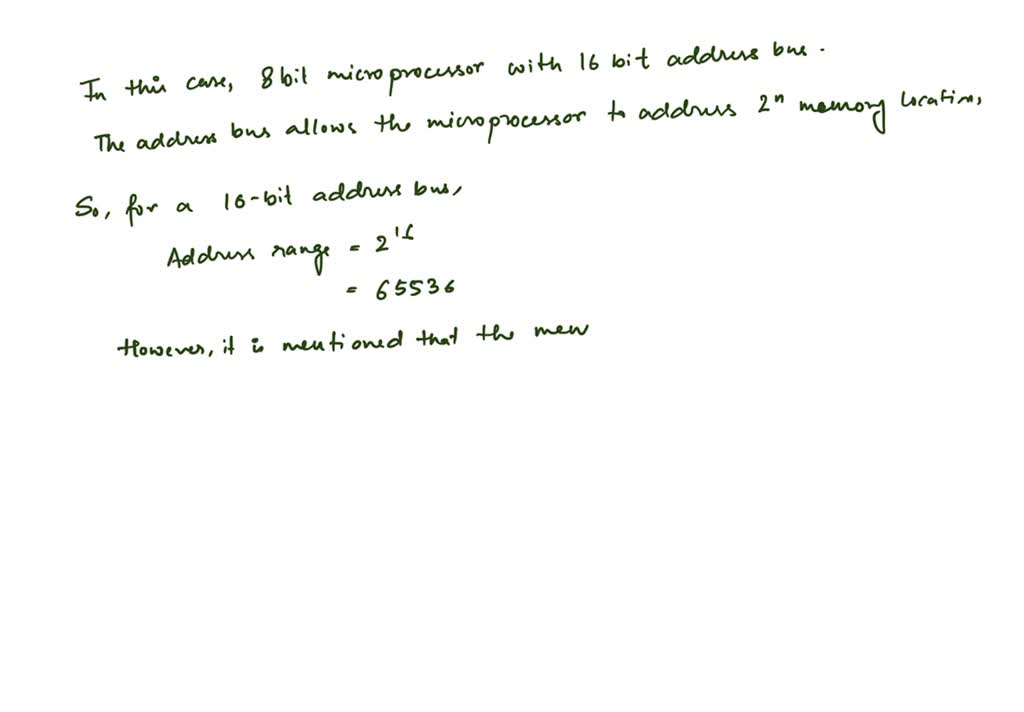 In this case, 8 bit microprocessor with 16 bit address bus.
The address bus allows the microprocessor to address 2ⁿ memory location,
So, for a 16-bit address bus,
Address range = 2¹⁶
= 65536
However, it is mentioned that the mem